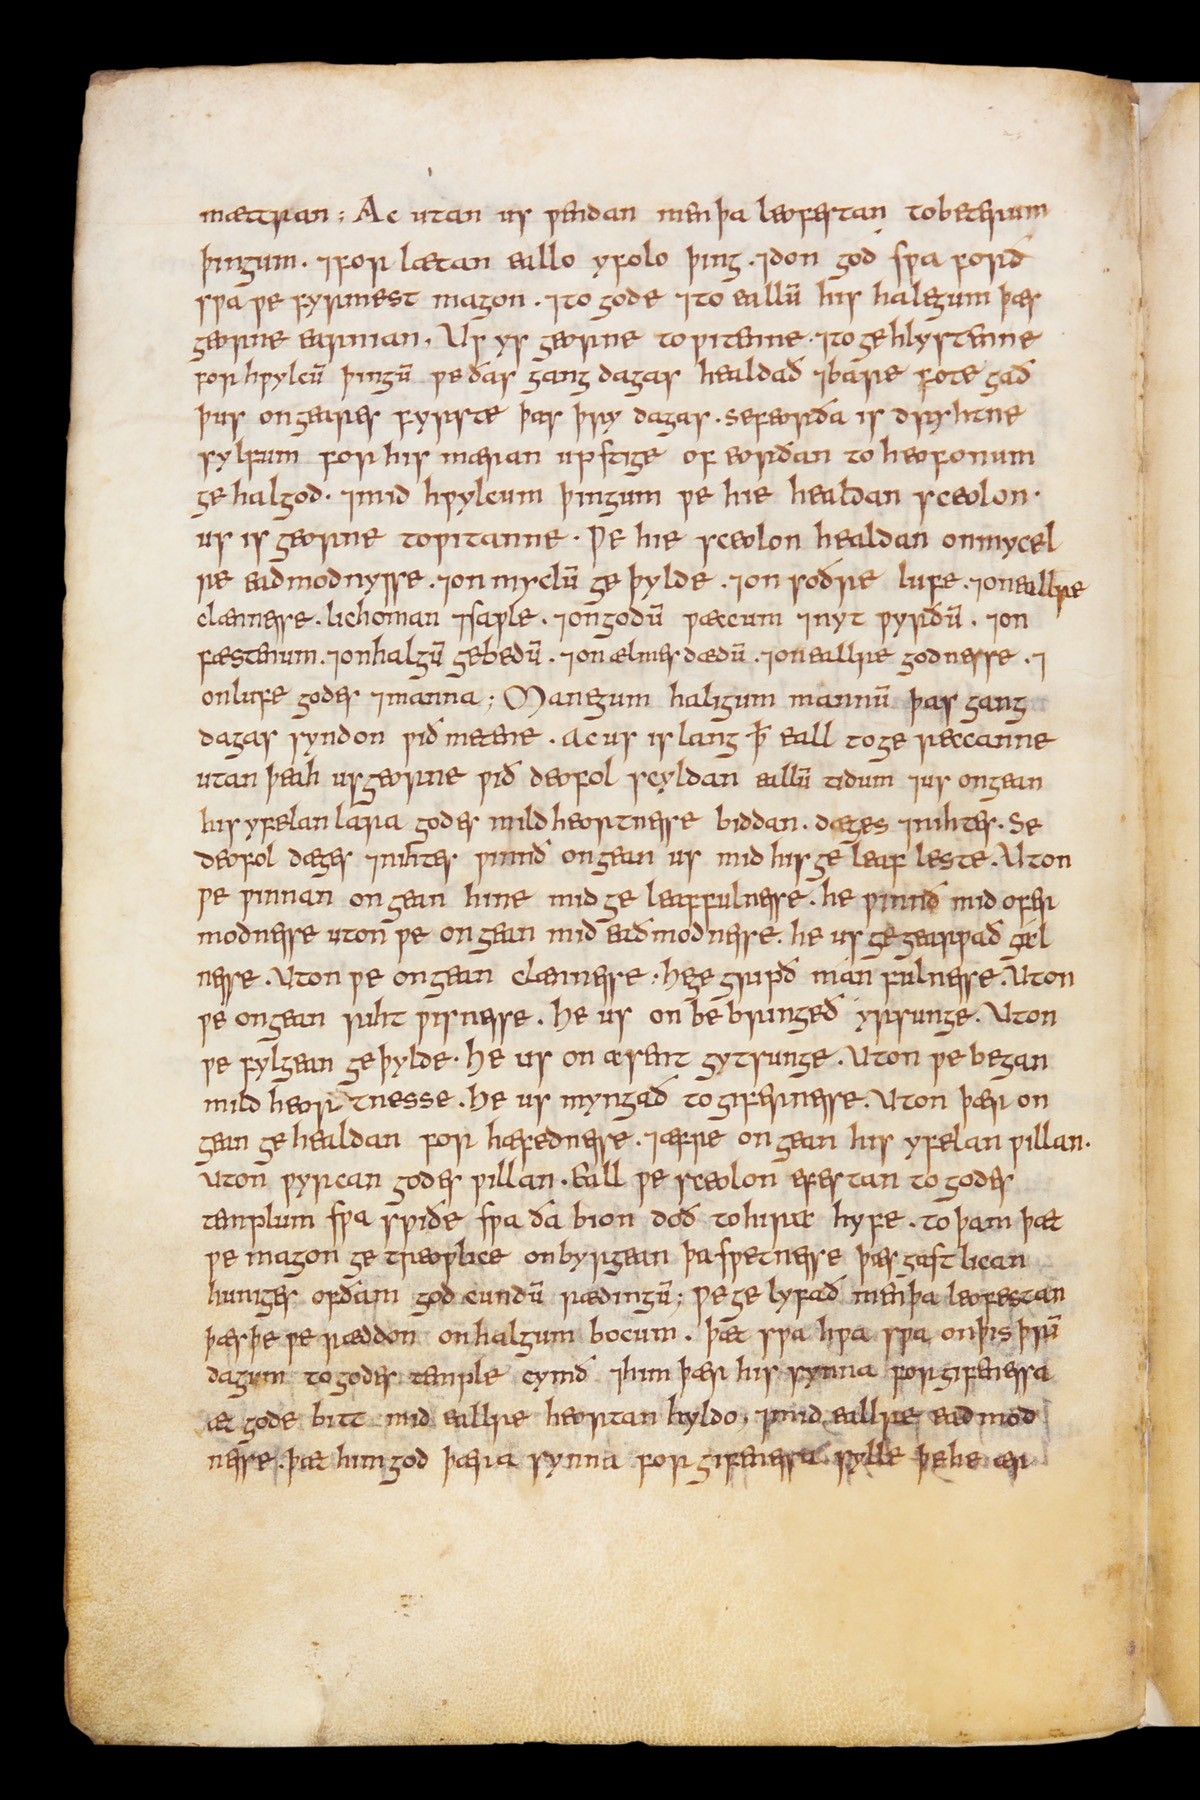 mættran; Ac utan us ƿendan men þa leofestan to beterum
þingum. ⁊ forlætan eallo yfolo þing. ⁊ don god sƿa forð
sƿa ƿe fyrmest magon. ⁊ to gode ⁊ to eallū his halegum þæs
geurne earnian. Us ys georne to ƿitenne. ⁊ to gehlystenne
for hƿylcū þingū ƿe ðas gang dagas healdað ⁊ bare fote gað
þus on geares fyrste þas þry dagas. se feorða is drihtne
sylfum for his mæran upstige of eorðan to heofonum
ge halgod. ⁊ mid hƿylcum þingum ƿe hie healdan sceolon.
us is georne to ƿitanne. Ƿe hie sceolon healdan on mycel
re eadmodnysse. ⁊ on myclū ge þylde. ⁊ on soðre lufe. ⁊ on eallre
clænnesse. lichoman ⁊ saƿle. ⁊ on godū ƿæccum ⁊ nyt ƿyrðū. ⁊ on
fæstenum. ⁊ on halgū gebedū. ⁊ on ælmes dædū. ⁊ on eallre godnesse. ⁊
on lufe godes ⁊ manna; Manegum haligum mannū þas gang
dagas syndon ƿið metene. Ac us is lang þ̄ eall to ge reccanne
utan þeah us georne ƿið deofol scyldan eallū tidum ⁊ us ongean
his yfelan lara godes mildheortnesse biddan. dæges ⁊ nihtes. Se
deofol dæges ⁊ nihtes ƿinnð ongean us mid his ge leaf leste. Uton
ƿe ƿinnan on gean hine mid ge leaffulnesse. he ƿinnð mid ofer
modnesse uton ƿe on gean mid eadmodnesse. he us ge gearƿað gæl
nesse. Uton ƿe on gean clænnesse. he ge griƿð man fulnesse. Uton
ƿe on gean riht ƿisnesse. he us on be bringeð yrsunge. Uton
ƿe fylgean ge þylde. he us on æsent gytsunge. Uton ƿe began
mild heort nesse. he us myngað to gifernesse. Uton þær on
gean ge healdan for hæfednesse. ⁊ æfre on gean his yfelan ƿillan.
Uton ƿyrcan godes ƿillan. Eall ƿe sceolon efestan to godes
templum sƿa sƿiðe sƿa ða bion doð to hiræ hyfe. to þam þæt
ƿe magon ge treoƿlice on byrgean þa sƿetnesse þæs gastlican
huniges of ðam god cundū rædingū; Ƿe ge lyfað men þa leofestan
þæs þe ƿe ræddon on halgum bocum. þæt sƿa hƿa sƿa on þis þrū
dagum to godes temple cymð ⁊ him þær his synna forgifenessa
æt gode bitt mid eallre heortan hyldo, ⁊ mid eallre eadmod
nesse. þæt him god þæra synna for gifenessa sylle þe he ær